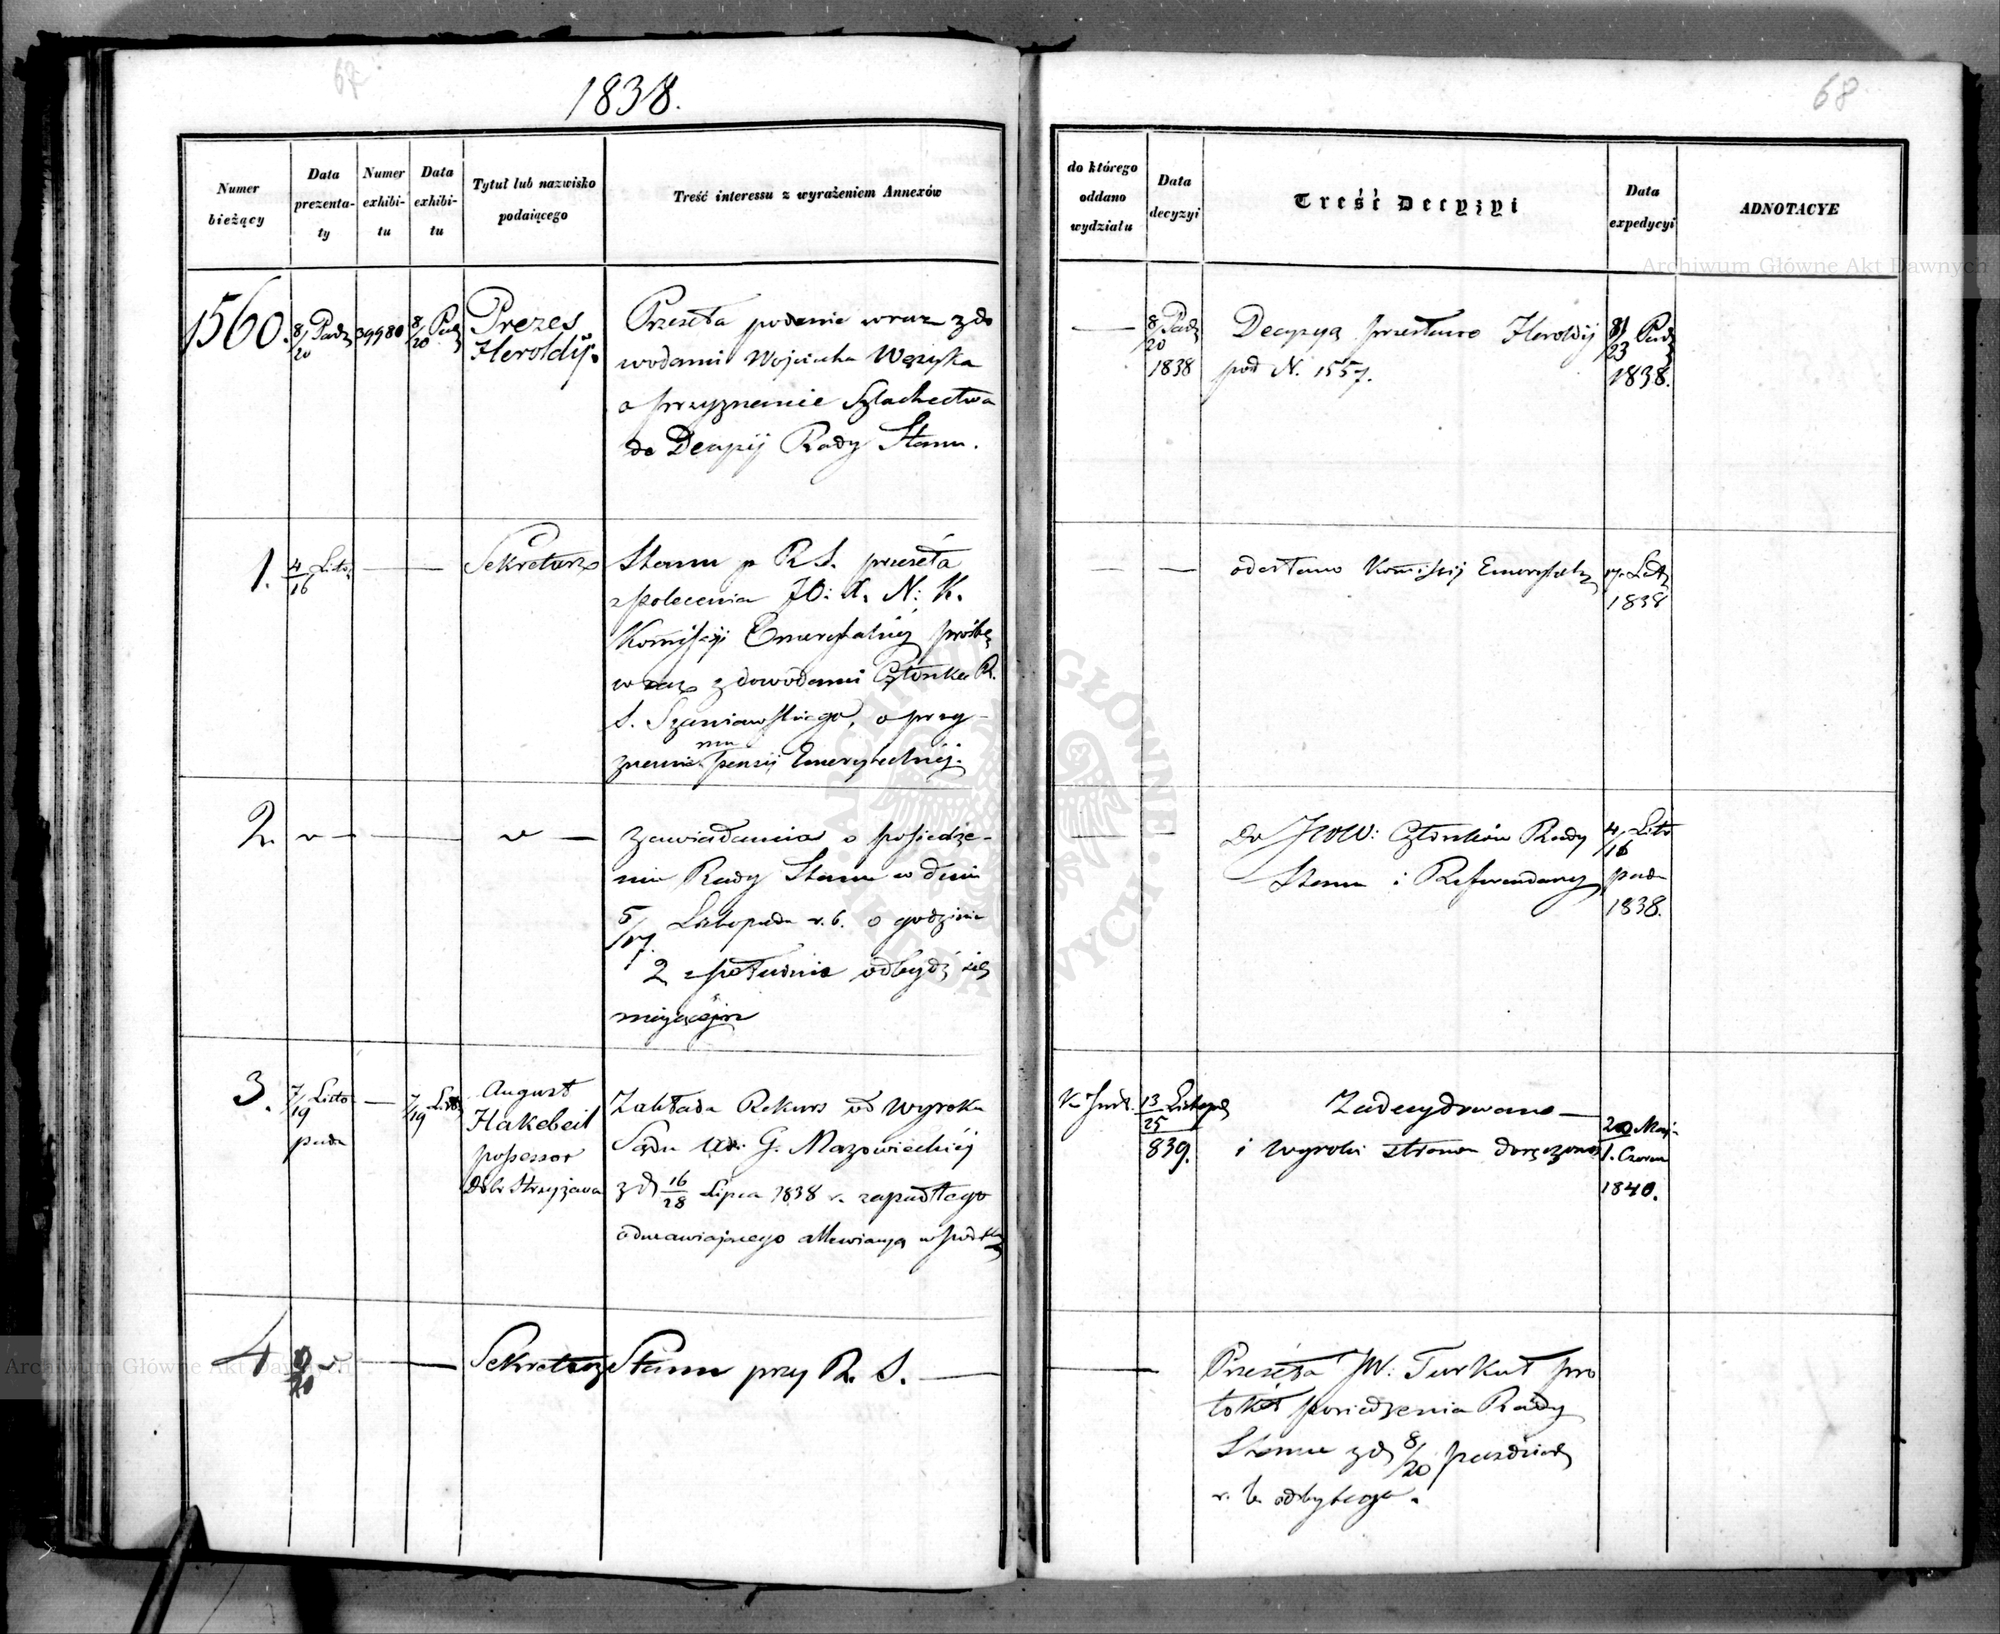 67
1838.
68
Numer bieżący
Data prezenta-ty
Numer exhibi-tu
Data exhibi-tu
Tytuł lub nazwisko podaiącego
Treść interessu z wyrażeniem Annexów
do którego oddano wydziału
Data decyzyi
Treść Decyzyi
Data expedycyi
ADNOTACYE
1560.
8/20 Paźd
39980
8/20 Paźd
Prezes
Heroldÿi
Przeseła podanie wraz z do
wodami Wojciecha Wężyka
o przyznanie Szlachectwa
do Decyzij Rady Stanu.
8/20 Paźd
1838
Decyzyą przesłano Heroldij
pod N. 1557.
Paźd
1838.
1.
4/16 Listo
Sekretarz
Stanu p R. S. przeseła
z polecenia JO: X. N: K.
Komissyi Emerytalnéj prośbę
wraz z dowodami Członka R.
S. Szaniawskiego, o przy-
znanie mu pensij Emerytalnéj.
odesłano Komissij Emerytaln
1838
2.
zawiadamia o posiedze-
niu Rady Stanu w dniu
5/17 Listopada r. b. o godzinie
2 z południa odbydź się
mającém
Do JWW: Członków Rady
Stanu i Referendarzy
4/16 Listo
pada
1838.
3.
7/19 Listo
pada
7/19 List
August
Hakebeil
possessor
Dóbr Strzyżawa
Zakłada Rekurs od Wyroku
Sądu G. Mazowieckiéj
z d 16/28 Lipca 1838 r. zapadłego
odmawiającego allewiacyą w podatku
13/25 Listopad
839.
Zadecydowano
i wyroki stronom doręczono
20 Maj
1. Czerw
1840.
4
20
Sekretarz Stanu przy R. S.
Przeseła JW: Turkuł pro
tokół posiedzenia Rady
Stanu z d 8/20 paźdźier
r. b. odbytego.
Archiwum Główne Akt Dawnych
Archiwum Główne Akt Dawnych
ARCHIWUM GŁÓWNE AKT DAWNYCH